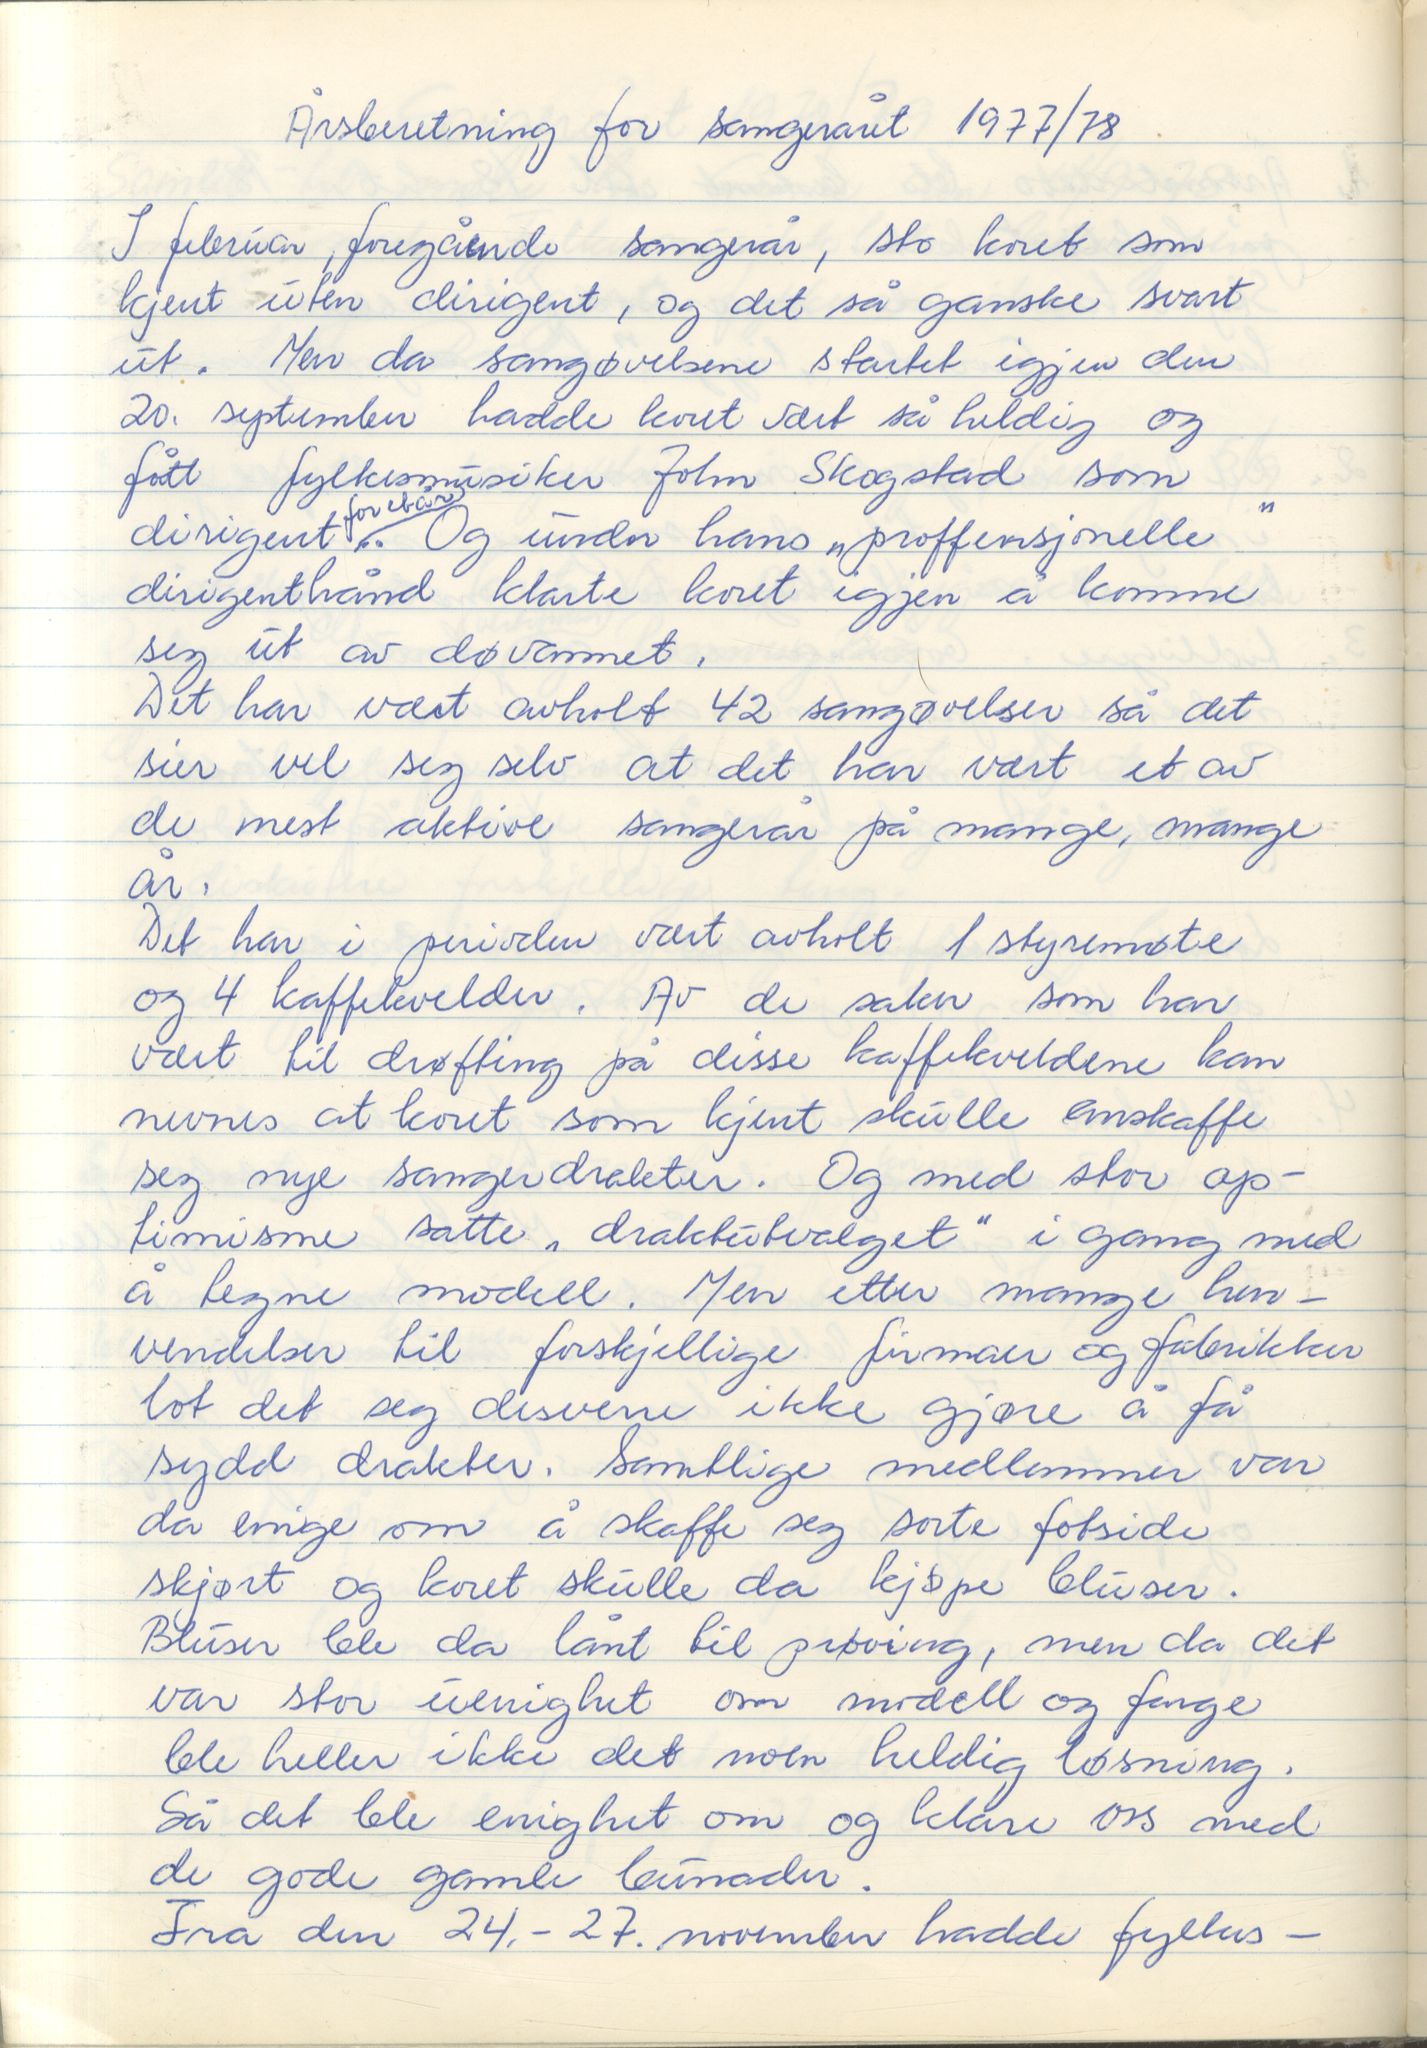 Årsberetning for sangeråret 1977/78
I februar, foregående sangerår, sto koret som
kjent uten dirigent, og det så ganske svart
ut. Men da sangøvelsene startet igjen den
20. september hadde koret vært så heldig og
fått fylkesmusiker John Skogstad som
dirigent for et år. Og under hans „proffensjonelle"
dirigenthånd klarte koret igjen å komme
seg ut av døvannet.
Det har vært avholt 42 sangøvelser så det
sier vel seg selv at det har vært et av
de mest aktive sangerår på mange, mange
år.
Det har i perioden vært avholt 1 styremøte
og 4 kaffekvelder. Av de saker som har
vært til drøfting på disse kaffekveldene kan
nevnes at koret som kjent skulle anskaffe
seg nye sangerdrakter. Og med stor op-
timisme satte „draktutvalget" i gang med
å tegne modell. Men etter mange hen-
vendelser til forskjellige firmaer og fabrikker
lot det seg desverre ikke gjøre å få
sydd drakter. Samtlige medlemmer var
da enige om å skaffe seg sorte fotside
skjørt og koret skulle da kjøpe bluser.
Bluser ble da lånt til prøving, men da det
var stor uenighet om modell og farge
ble heller ikke det noen heldig løsning.
Så det ble enighet om og klare oss med
de gode gamle bunader.
Fra den 24.-27. november hadde fylkes-